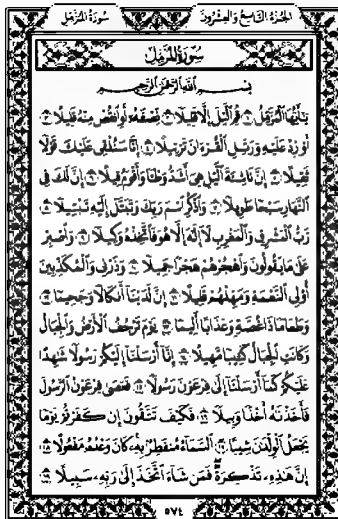 سُورَةُ المُزَّمِّل الجُزْءُ التَّاسِعُ وَالعِشْرُونَ
سُورَةُ المُزَّمِّل
بِسْمِ اللَّهِ الرَّحْمَٰنِ الرَّحِيمِ
يَٰٓأَيُّهَا ٱلْمُزَّمِّلُ ١ قُمِ ٱلَّيْلَ إِلَّا قَلِيلًا ٢ نِّصْفَهُۥٓ أَوِ ٱنقُصْ مِنْهُ قَلِيلًا ٣
أَوْ زِدْ عَلَيْهِ وَرَتِّلِ ٱلْقُرْءَانَ تَرْتِيلًا ٤ إِنَّا سَنُلْقِى عَلَيْكَ قَوْلًا
ثَقِيلًا ٥ إِنَّ نَاشِئَةَ ٱلَّيْلِ هِىَ أَشَدُّ وَطْـًٔا وَأَقْوَمُ قِيلًا ٦ إِنَّ لَكَ فِى
ٱلنَّهَارِ سَبْحًا طَوِيلًا ٧ وَٱذْكُرِ ٱسْمَ رَبِّكَ وَتَبَتَّلْ إِلَيْهِ تَبْتِيلًا ٨
رَّبُّ ٱلْمَشْرِقِ وَٱلْمَغْرِبِ لَآ إِلَٰهَ إِلَّا هُوَ فَٱتَّخِذْهُ وَكِيلًا ٩ وَٱصْبِرْ
عَلَىٰ مَا يَقُولُونَ وَٱهْجُرْهُمْ هَجْرًا جَمِيلًا ١٠ وَذَرْنِى وَٱلْمُكَذِّبِينَ
أُو۟لِى ٱلنَّعْمَةِ وَمَهِّلْهُمْ قَلِيلًا ١١ إِنَّ لَدَيْنَآ أَنكَالًا وَجَحِيمًا ١٢
وَطَعَامًا ذَا غُصَّةٍ وَعَذَابًا أَلِيمًا ١٣ يَوْمَ تَرْجُفُ ٱلْأَرْضُ وَٱلْجِبَالُ
وَكَانَتِ ٱلْجِبَالُ كَثِيبًا مَّهِيلًا ١٤ إِنَّآ أَرْسَلْنَآ إِلَيْكُمْ رَسُولًا شَٰهِدًا
عَلَيْكُمْ كَمَآ أَرْسَلْنَآ إِلَىٰ فِرْعَوْنَ رَسُولًا ١٥ فَعَصَىٰ فِرْعَوْنُ ٱلرَّسُولَ
فَأَخَذْنَٰهُ أَخْذًا وَبِيلًا ١٦ فَكَيْفَ تَتَّقُونَ إِن كَفَرْتُمْ يَوْمًا
يَجْعَلُ ٱلْوِلْدَٰنَ شِيبًا ١٧ ٱلسَّمَآءُ مُنفَطِرٌۢ بِهِۦ كَانَ وَعْدُهُۥ مَفْعُولًا ١٨
إِنَّ هَٰذِهِۦ تَذْكِرَةٌ فَمَن شَآءَ ٱتَّخَذَ إِلَىٰ رَبِّهِۦ سَبِيلًا ١٩
٥٧٤